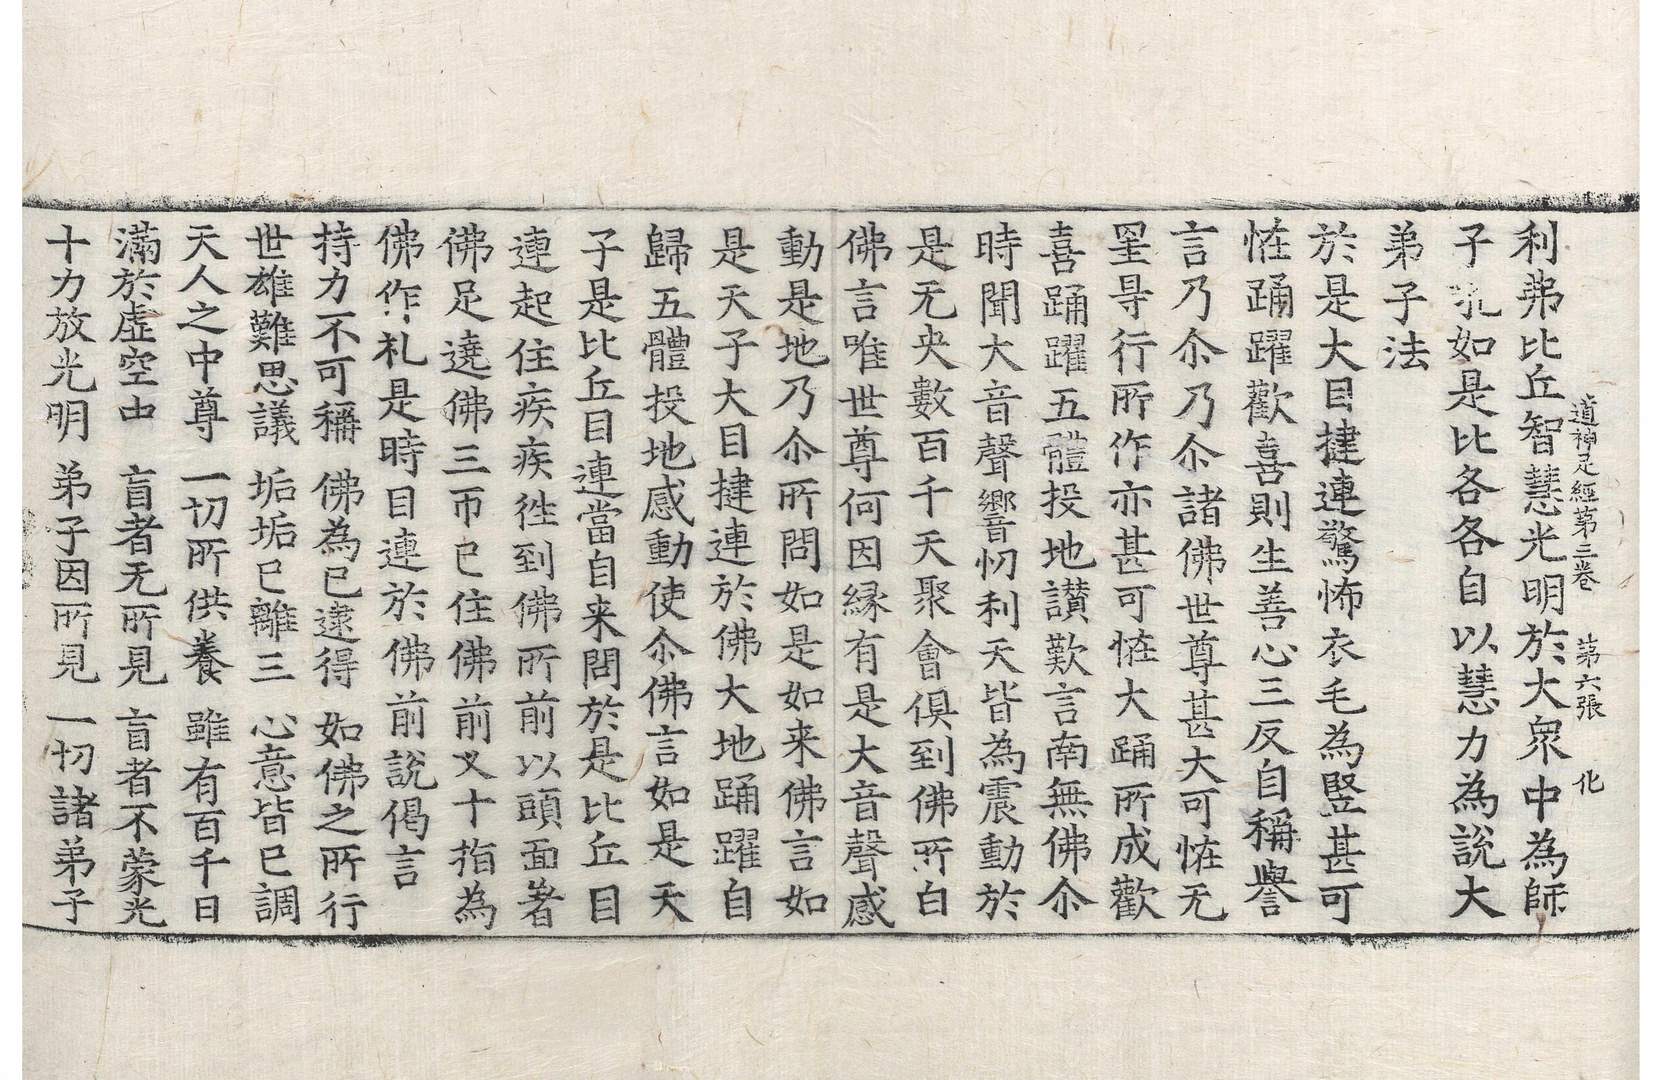 道神足經第三卷　第六張　化
利弗比丘智慧光明於大衆中為師
子吼如是比各各自以慧力為說大
弟子法
於是大目揵連驚怖衣毛為竪甚可
恠踊躍歡喜則生善心三反自稱譽
言乃尒乃尒諸佛世尊甚大可恠无
罣㝵行所作亦甚可恠大踊所成歡
喜踊躍五體投地讃歎言南無佛尒
時聞大音聲響忉利天皆為震動於
是无央數百千天聚會俱到佛所白
佛言唯世尊何因縁有是大音聲感
動是地乃尒所問如是如来佛言如
是天子大目揵連於佛大地踊躍自
歸五體投地感動使尒佛言如是天
子是比丘目連當自来問於是比丘目
連起住疾疾徃到佛所前以頭面著
佛足遶佛三帀已住佛前叉十指為
佛作礼是時目連於佛前說偈言
持力不可稱　佛為已逮得　如佛之所行
世雄難思議　垢垢已離三　心意皆已調
天人之中尊　一切所供養　雖有百千日
滿於虛空中　盲者无所見　盲者不蒙光
十力放光明　弟子因所見　一切諸弟子